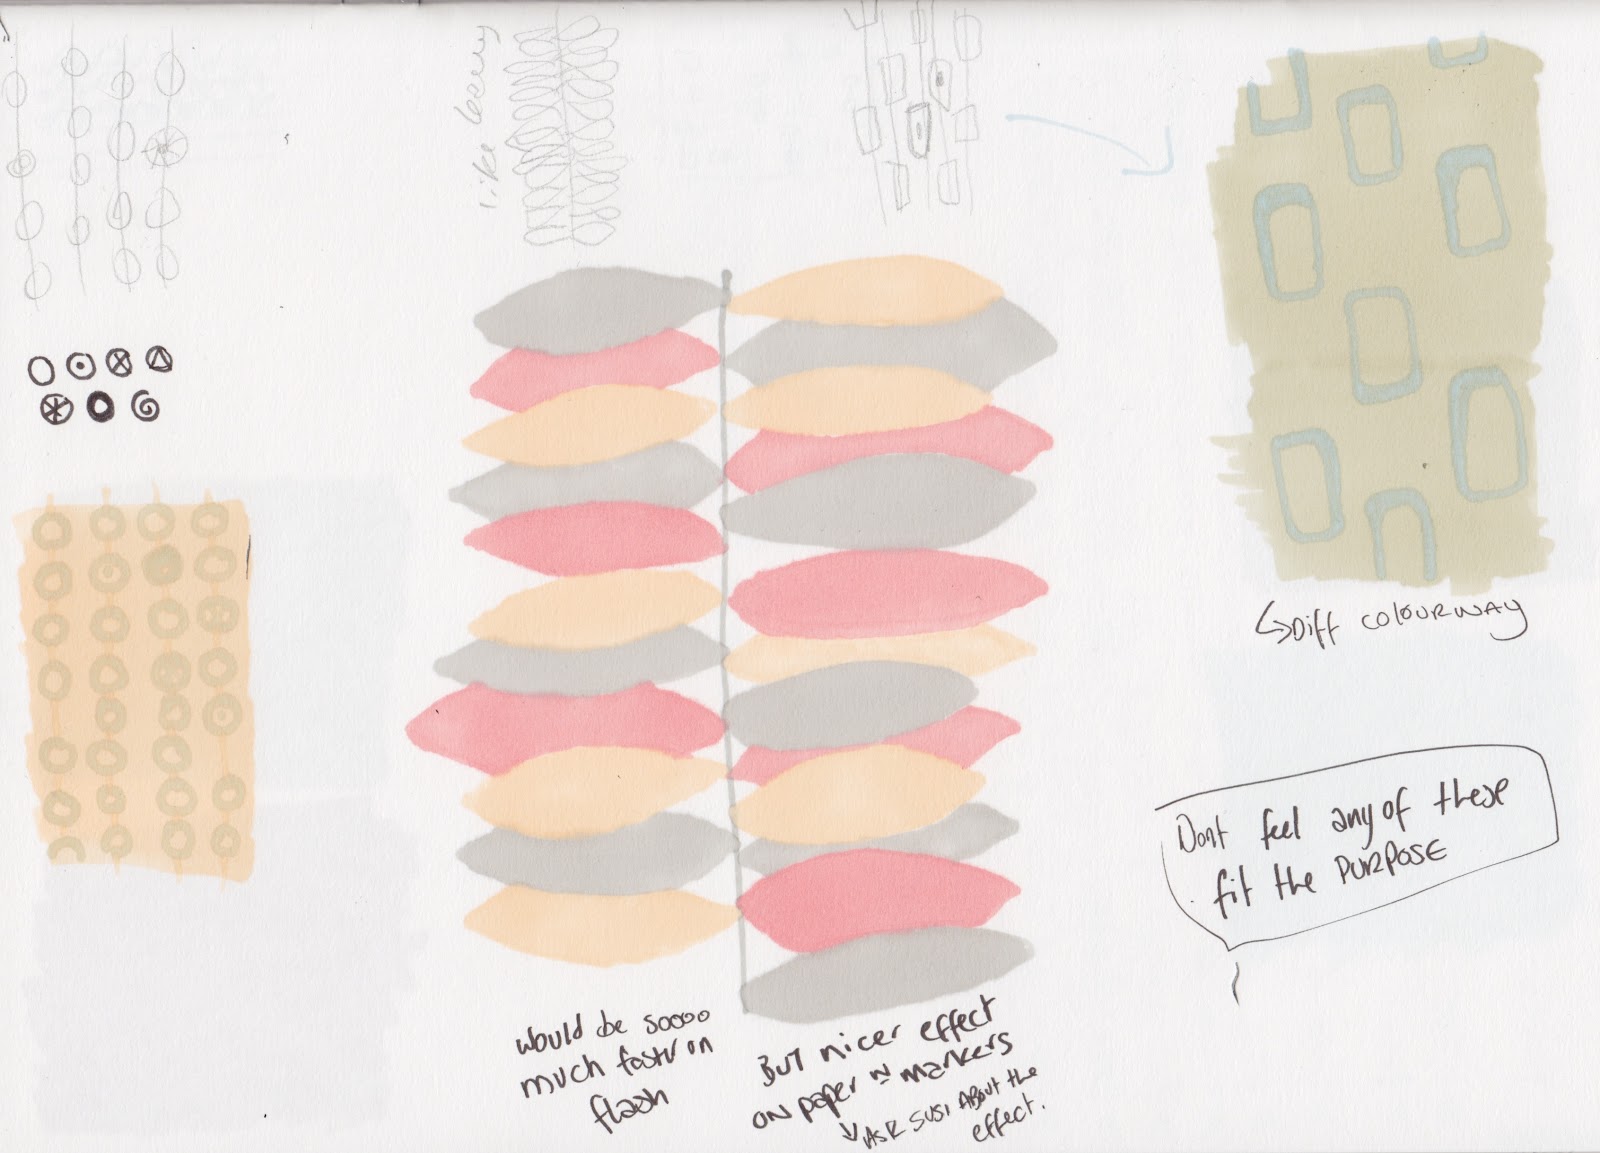 like leevy
↳Diff colourway
Dont feel any of these
fit the PURPOSE
would be soooo
much fastr on
flash
But nicer effect
on paper N markers
↓ ASK SUSI About the
effect.